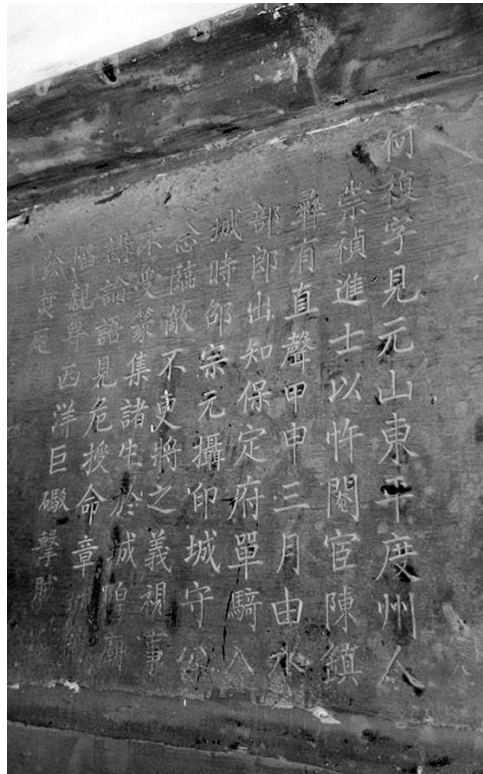 何復字見元山東平度州人
崇禎進士以忤閹宦陳鎮
彝有直聲甲申三月由水
部郎出知保定府單騎入
城時邵宗元攝印城守公
念臨敵不更將之義視事
不受篆集諸生於城隍廟
講論語見危授命章城
親昇西洋巨礮擊賊
公焚死